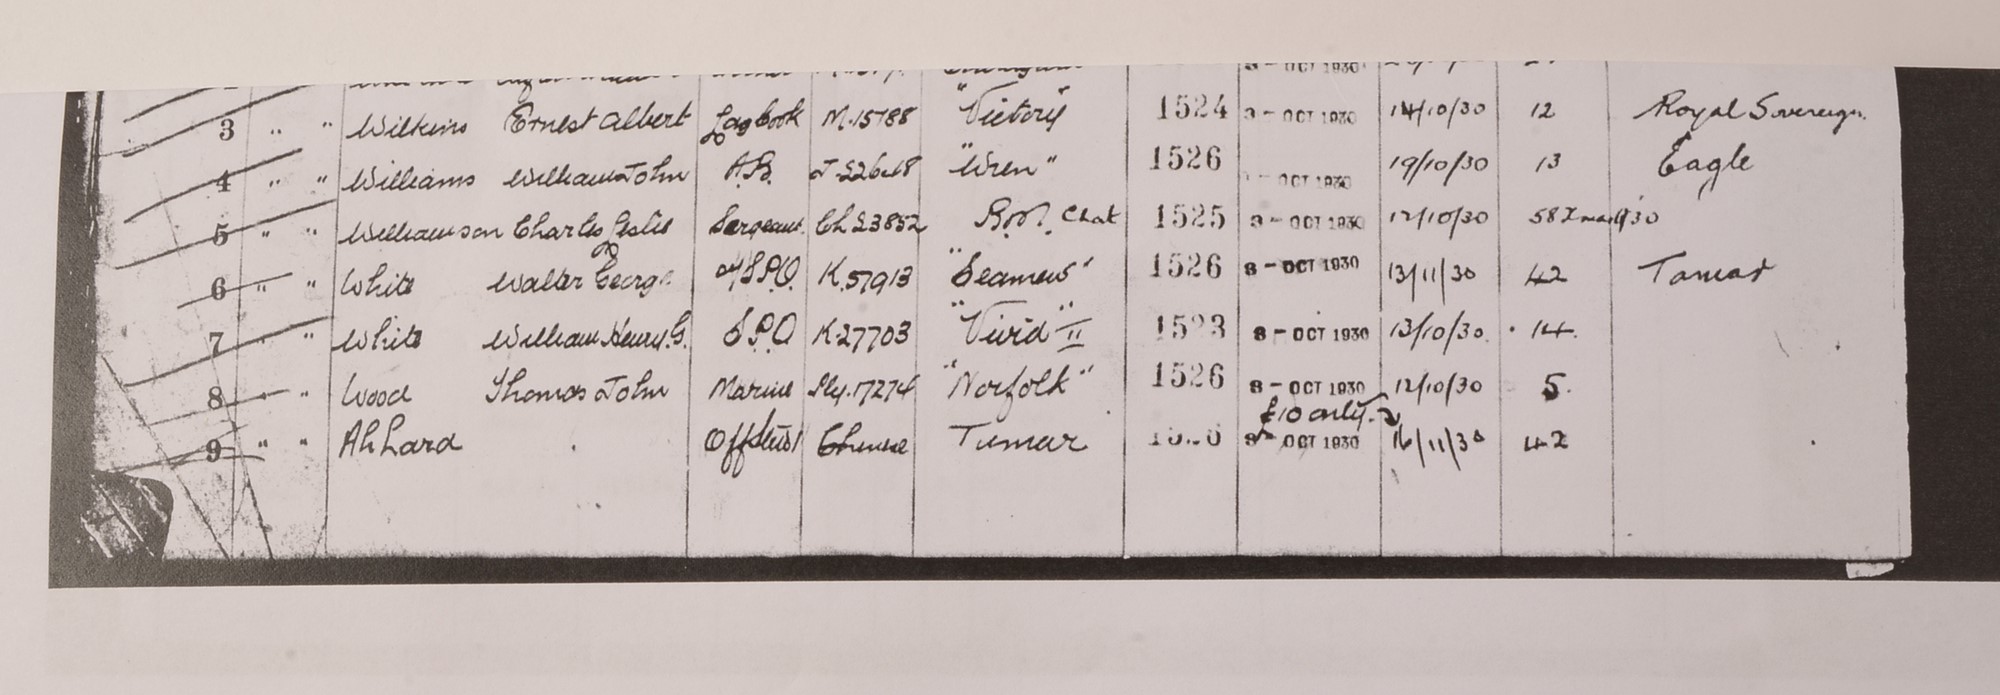 8 - OCT 1930
3 " " Wilkins Ernest Albert M.15788 "Victory" 1524 8 - OCT 1930 14/10/30 12 Royal Sovereign
4 " " Williams William John A.B. J.22648 "Wren" 1526 OCT 1930 19/10/30 13 Eagle
5 " " Williamson Charles Leslie Sergeant Ch 23852 R.M. Chat 1525 8 - OCT 1930 12/10/30 58
6 " " White Walter George S.P.O. K.57913 "Seamew" 1526 8 - OCT 1930 13/11/30 42 Tamar
7 " " White William Henry G. S.P.O K.27703 "Vivid" II 1523 8 - OCT 1930 13/10/30. 14.
8 " " Wood Thomas John Marine Ply.17274 "Norfolk" 1526 8 - OCT 1930 12/10/30 5.
£10 only.
9 " " Ah Chinese Tamar 8 - OCT 1930 16/11/30 42